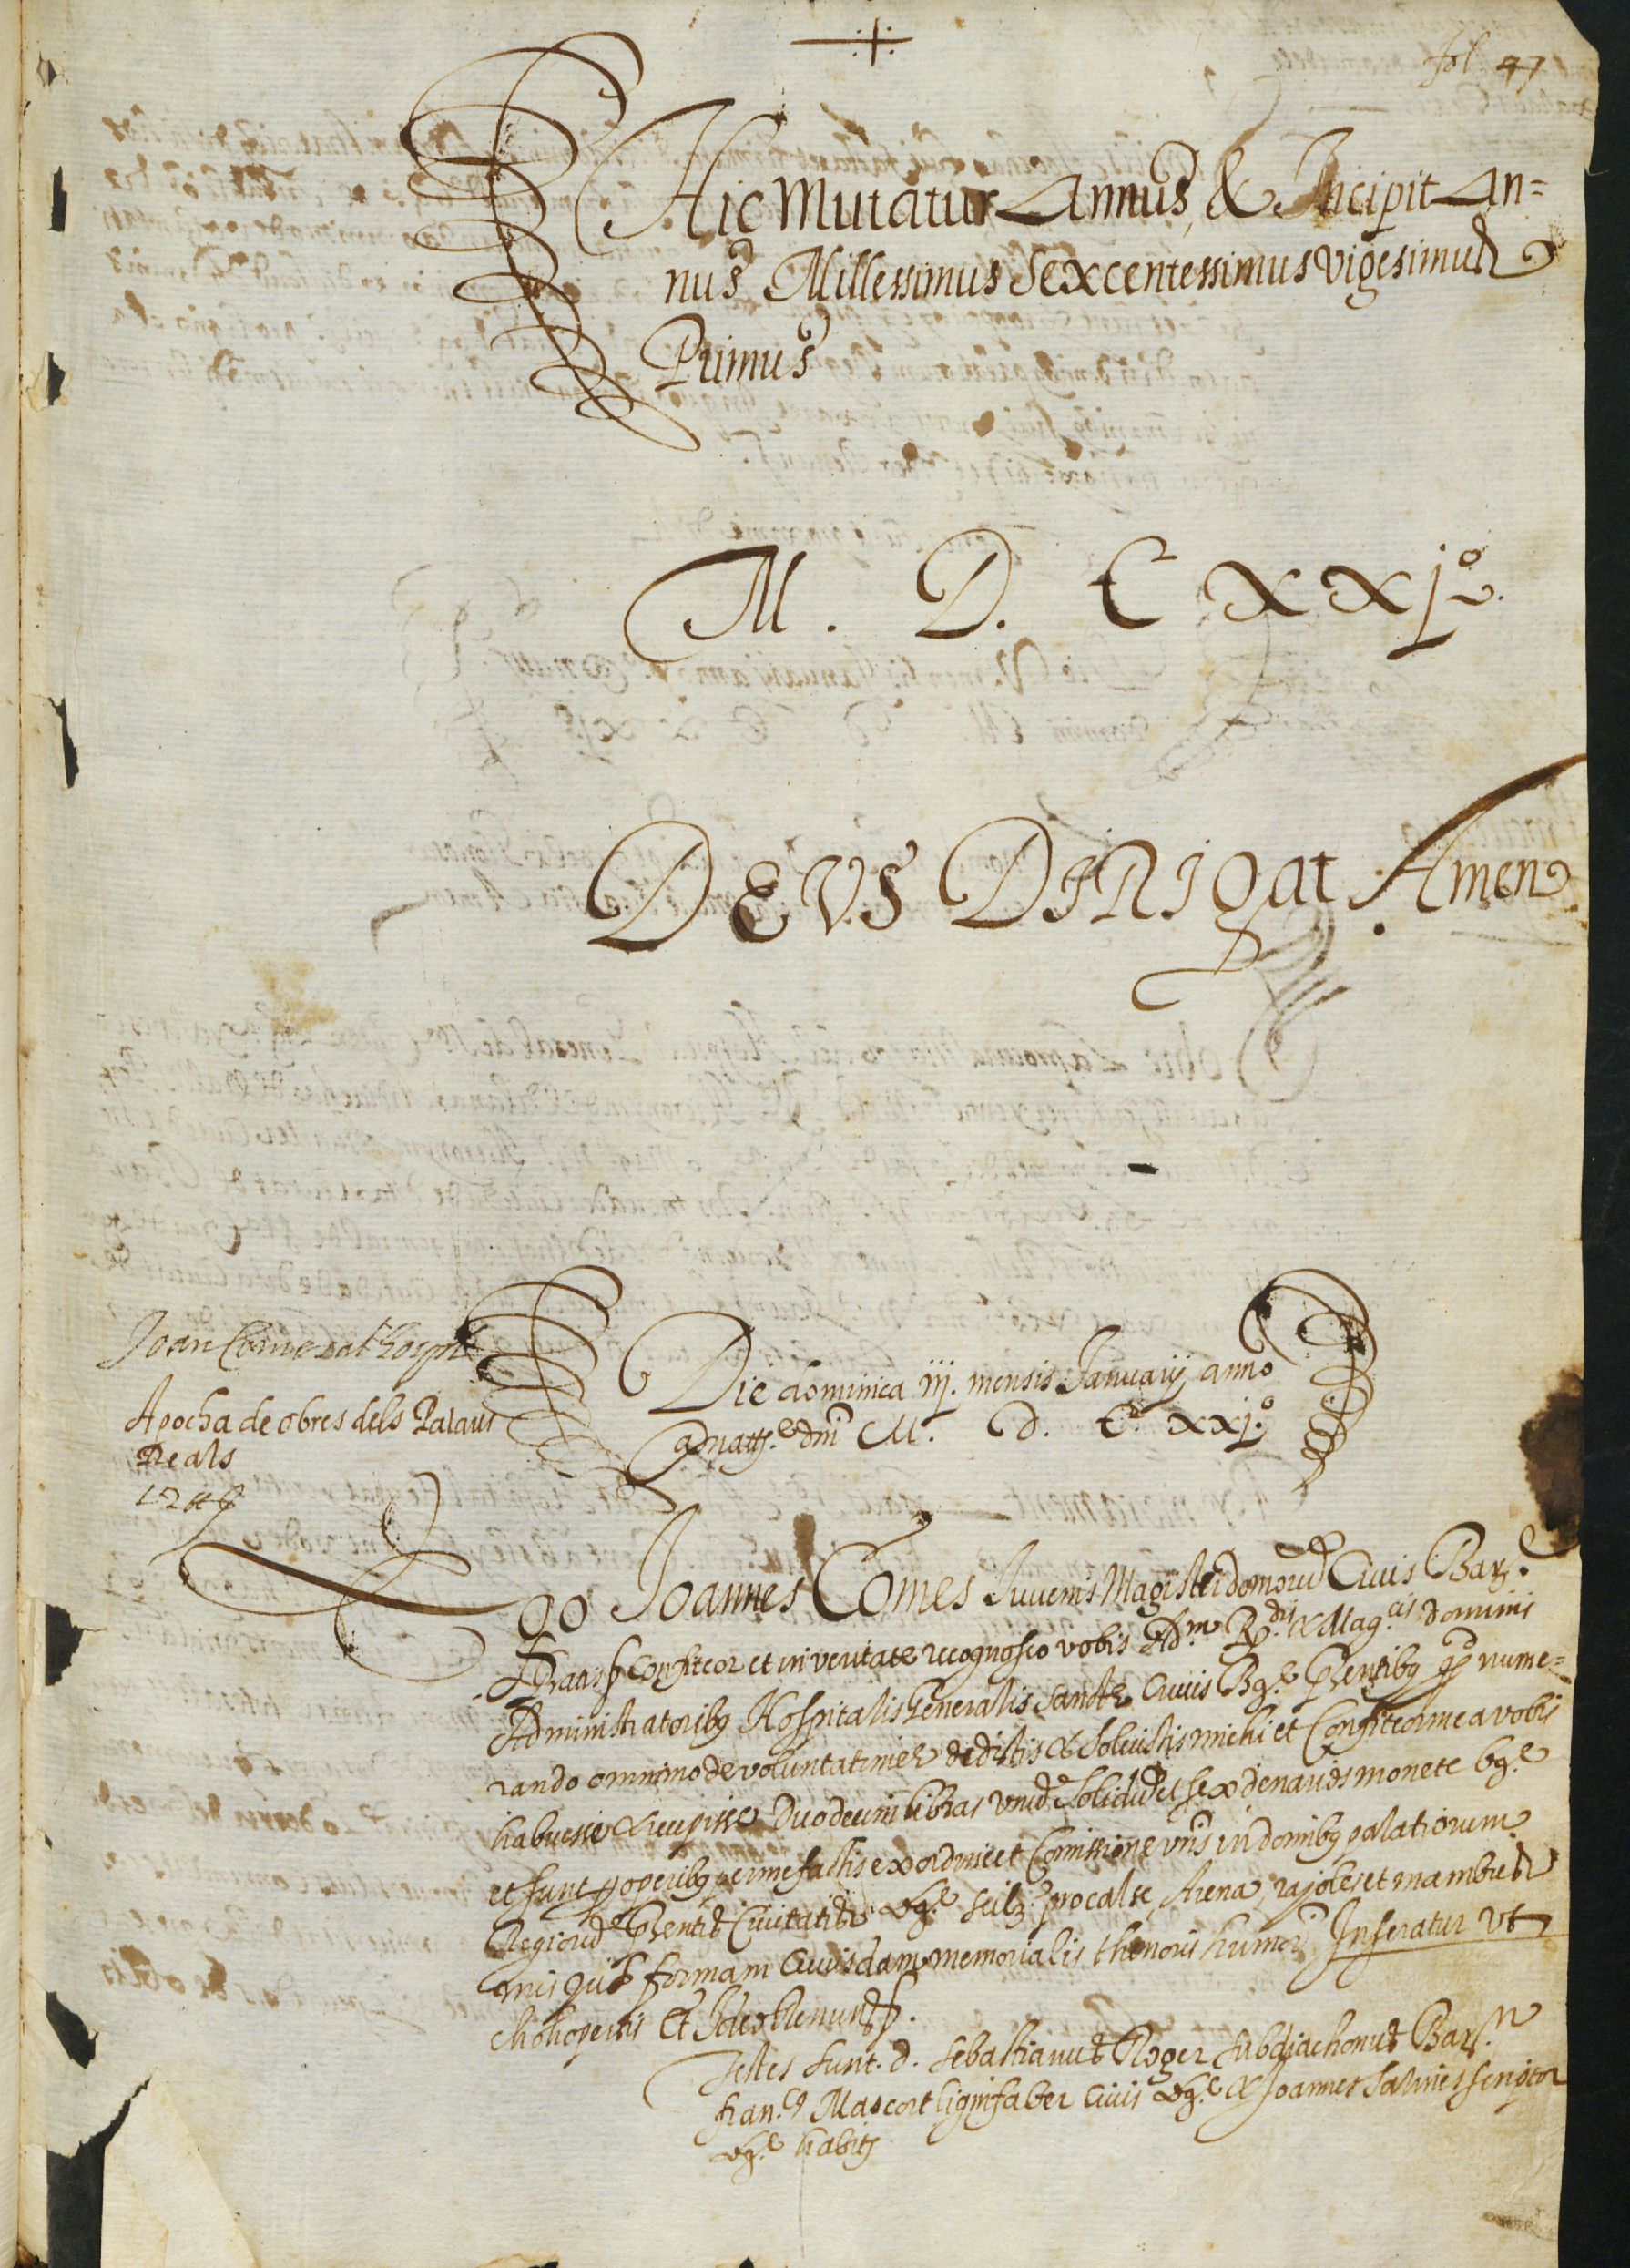 fol 47
Hic Mutatur Annus, & Incipit An=
nus Millessimus Sexcentessimus vigesimus
Primus
M. D. C XXj.º
DEVS DIRIgat Amen
Joan Comes al hospital
Apocha de obres dels Palaus
Reals
Die dominica iij. mensis Januarij anno
a natte. dni M. D. C. XXj.º
Ego Joannes Comes Juvenis Magister domorum Civis Barᵉ.
Gratis &c Confiteor et in veritate recognosco vobis Adm. Rdis. & Magcis. dominis
Administratoribus Hospitalis Generalis Sancte Crucis Bqᵉ. presentibus quod nume=
rando omnimode voluntati mee dedistis & solvistis michi et Confiteor me a vobis
habuisse & recepisse Duodecim libras unum solidum et sex denarios monete bqᵉ
et sunt pro operibus per me factis ex ordine et Comissione vris in domibus palatiorum
Regiorum presentis Civitatis bqᵉ. scilz. pro calse, Arena, rajoles et mans
formam Cuiusdam memorialis thenoris humoi Inseratur ut
Et Ideo Renuns &c.
Testes sunt. d. Sebastianus Roger subdiachonus Bar.
fran.s Mascort lignifaber Civis bqᵉ & Joannes Salines scriptor
bqᵉ habits